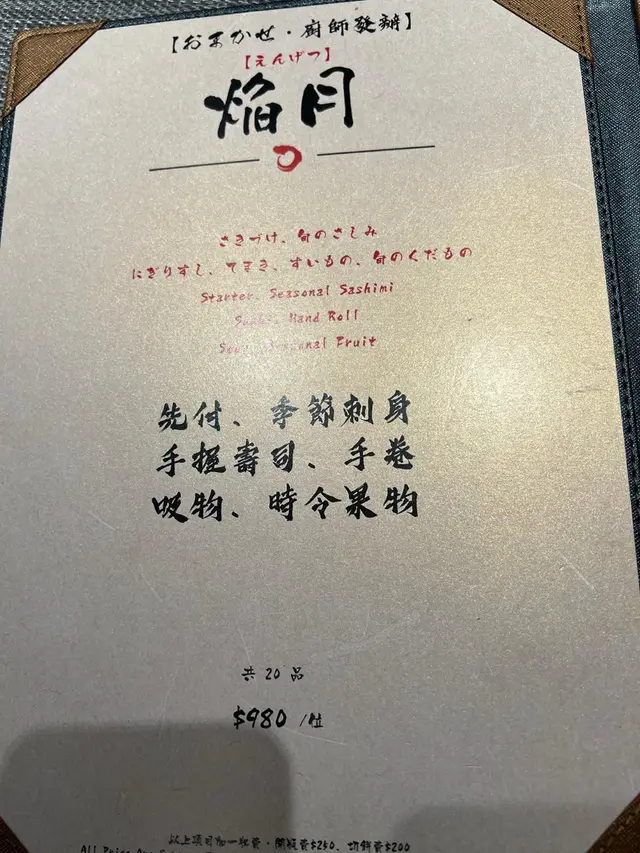 【おまかせ・廚師發辦】
【えんげつ】
焔月
さきづけ、旬のさしみ
にぎりずし、てまき、すいもの、旬のくだもの
Starter、Seasonal Sashimi
Sushi、Hand Roll
Soup、Seasonal Fruit
先付、季節刺身
手握壽司、手巻
吸物、時令果物
共 20 品
$980 /位
以上項目加一收費・開瓶費$250、切餅費$200
All Price Are